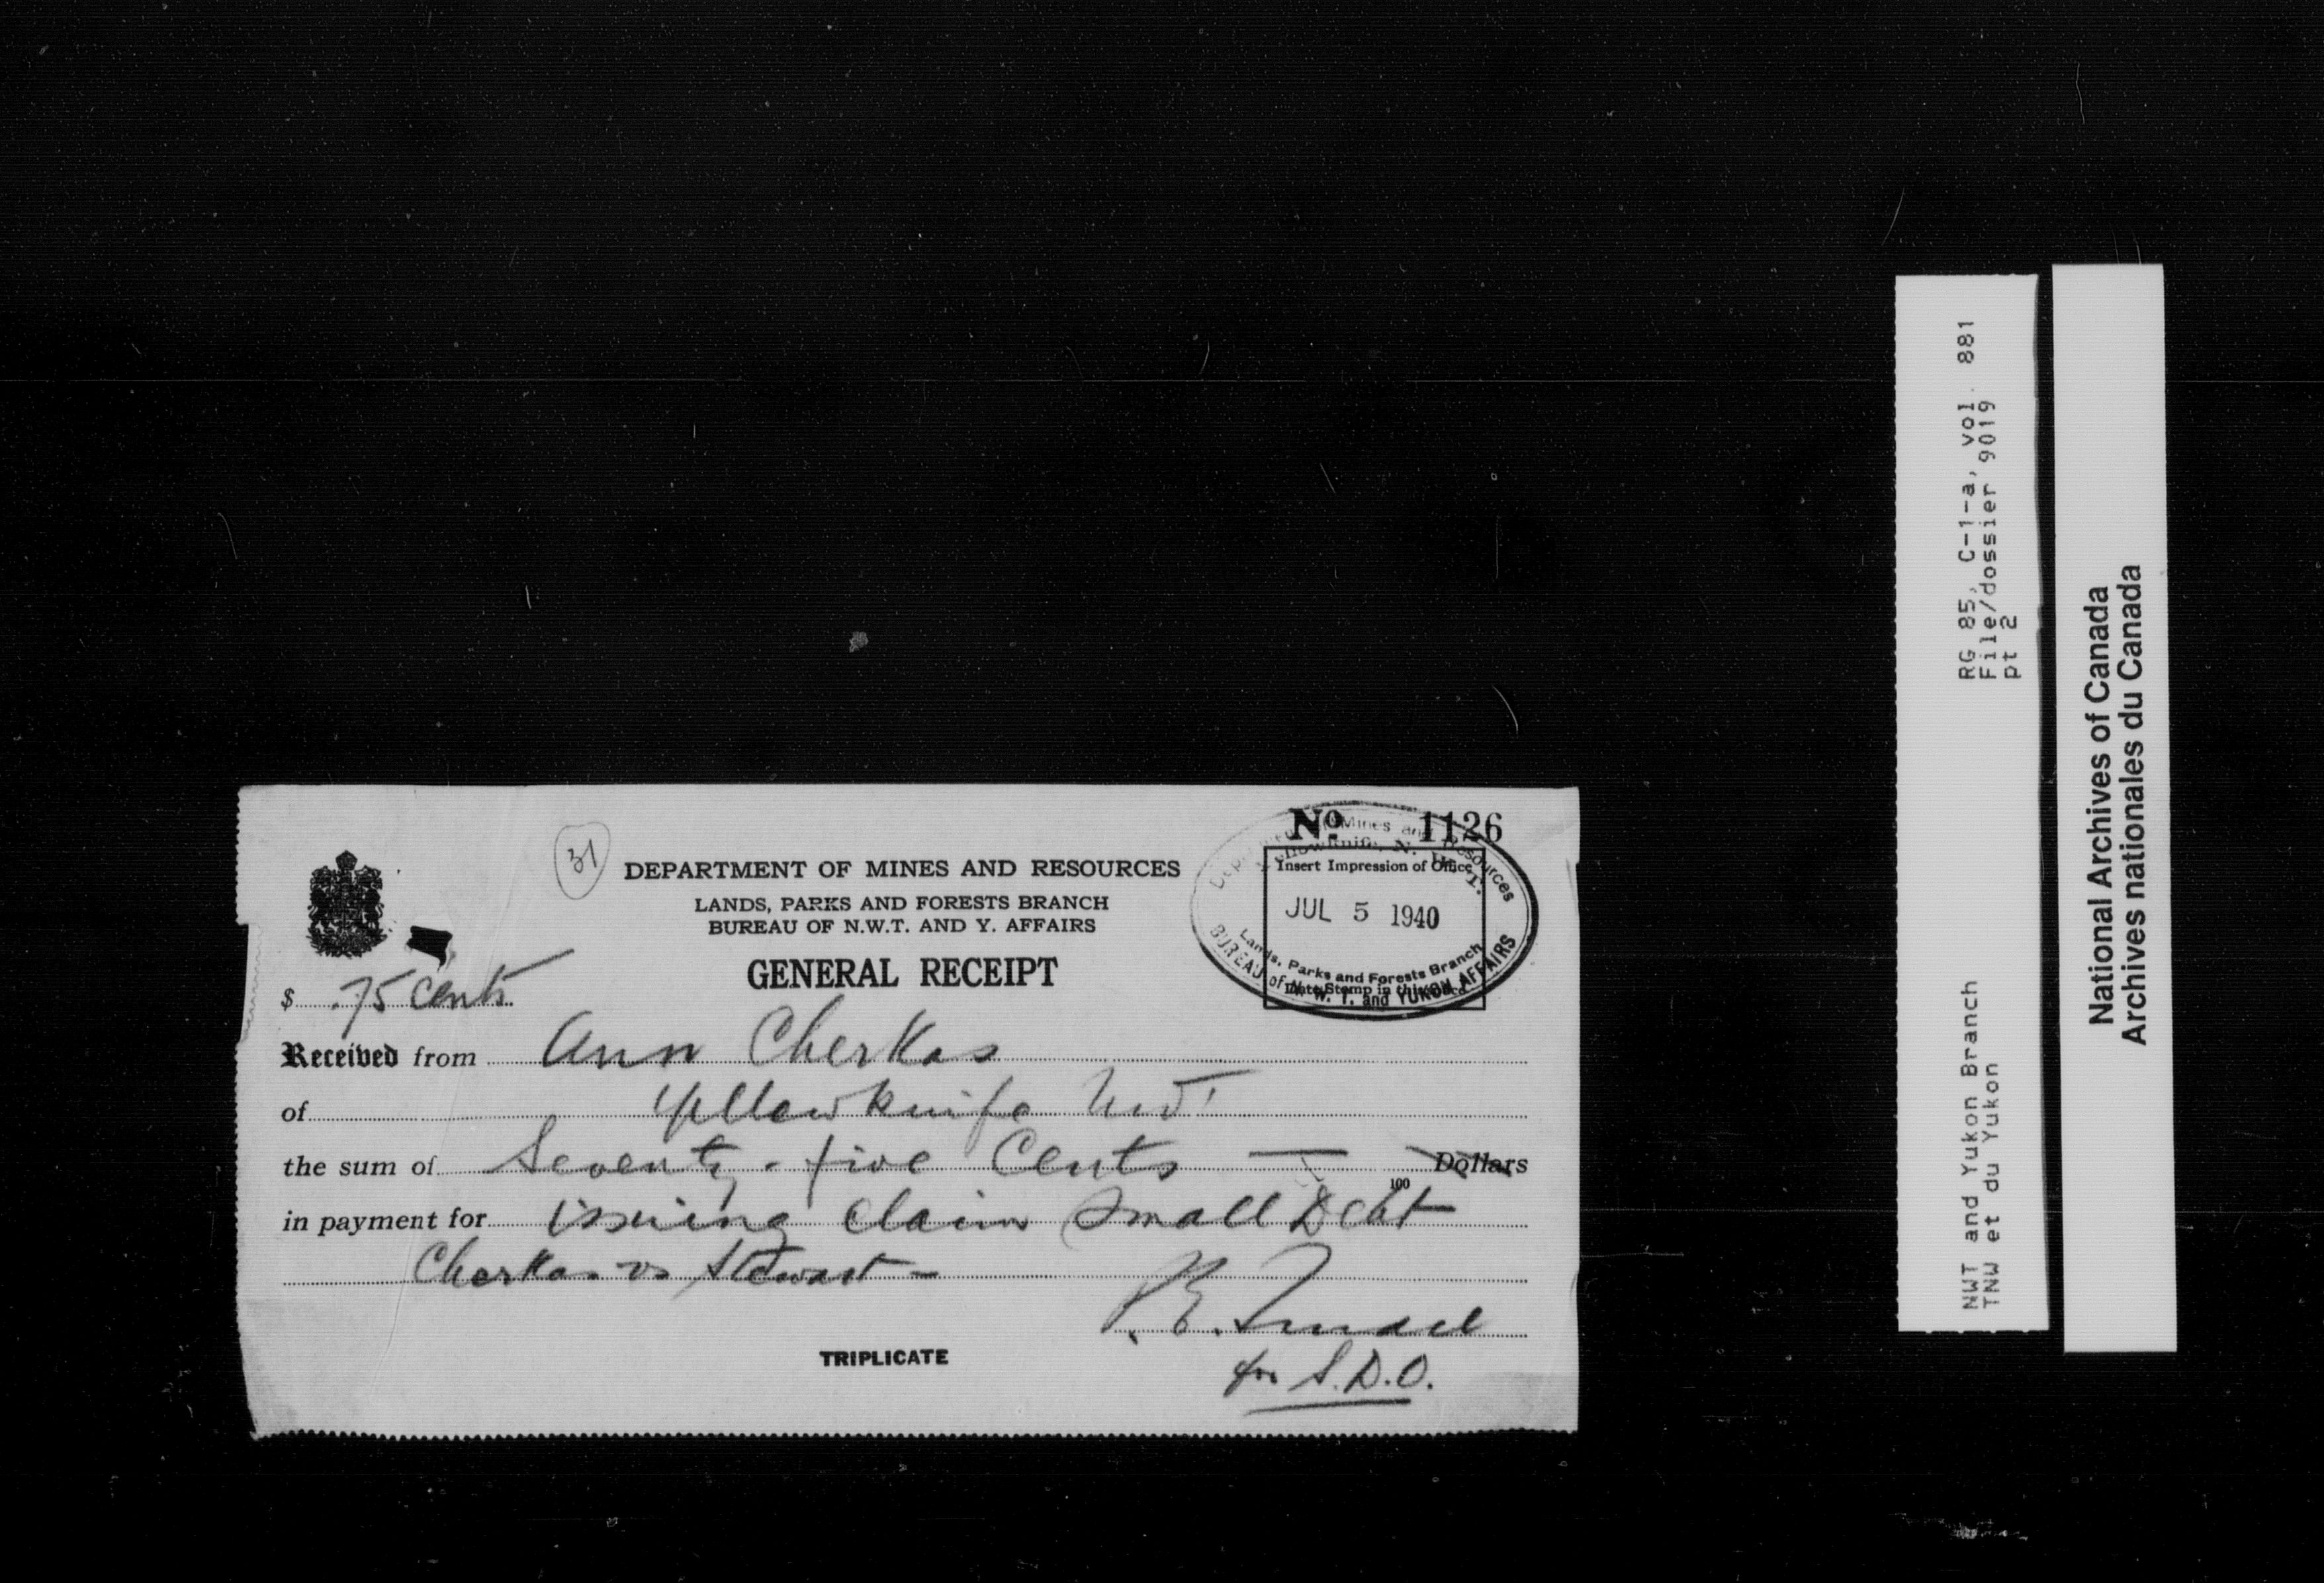 No. 1126
31
DEPARTMENT OF MINES AND RESOURCES
LANDS, PARKS AND FORESTS BRANCH
BUREAU OF N.W.T. AND Y. AFFAIRS
GENERAL RECEIPT
Mines and Resources
Yellowknife, N. W. T.
Insert Impression of Office
JUL 5 1940
Lands, Parks and Forests Branch
Date Stamp in this
BUREAU of N. W. T. and YUKON AFFAIRS
$ .75 cents
Received from Ann Cherkas
of Yellowknife NWT
the sum of Seventy-five Cents — Dollars
100
in payment for issuing claim Small Debt
Cherkas vs Stewart -
for S.D.O.
TRIPLICATE
RG 85, C-1-a, vol. 881
File/dossier 9019
pt 2
NWT and Yukon Branch
TNW et du Yukon
National Archives of Canada
Archives nationales du Canada